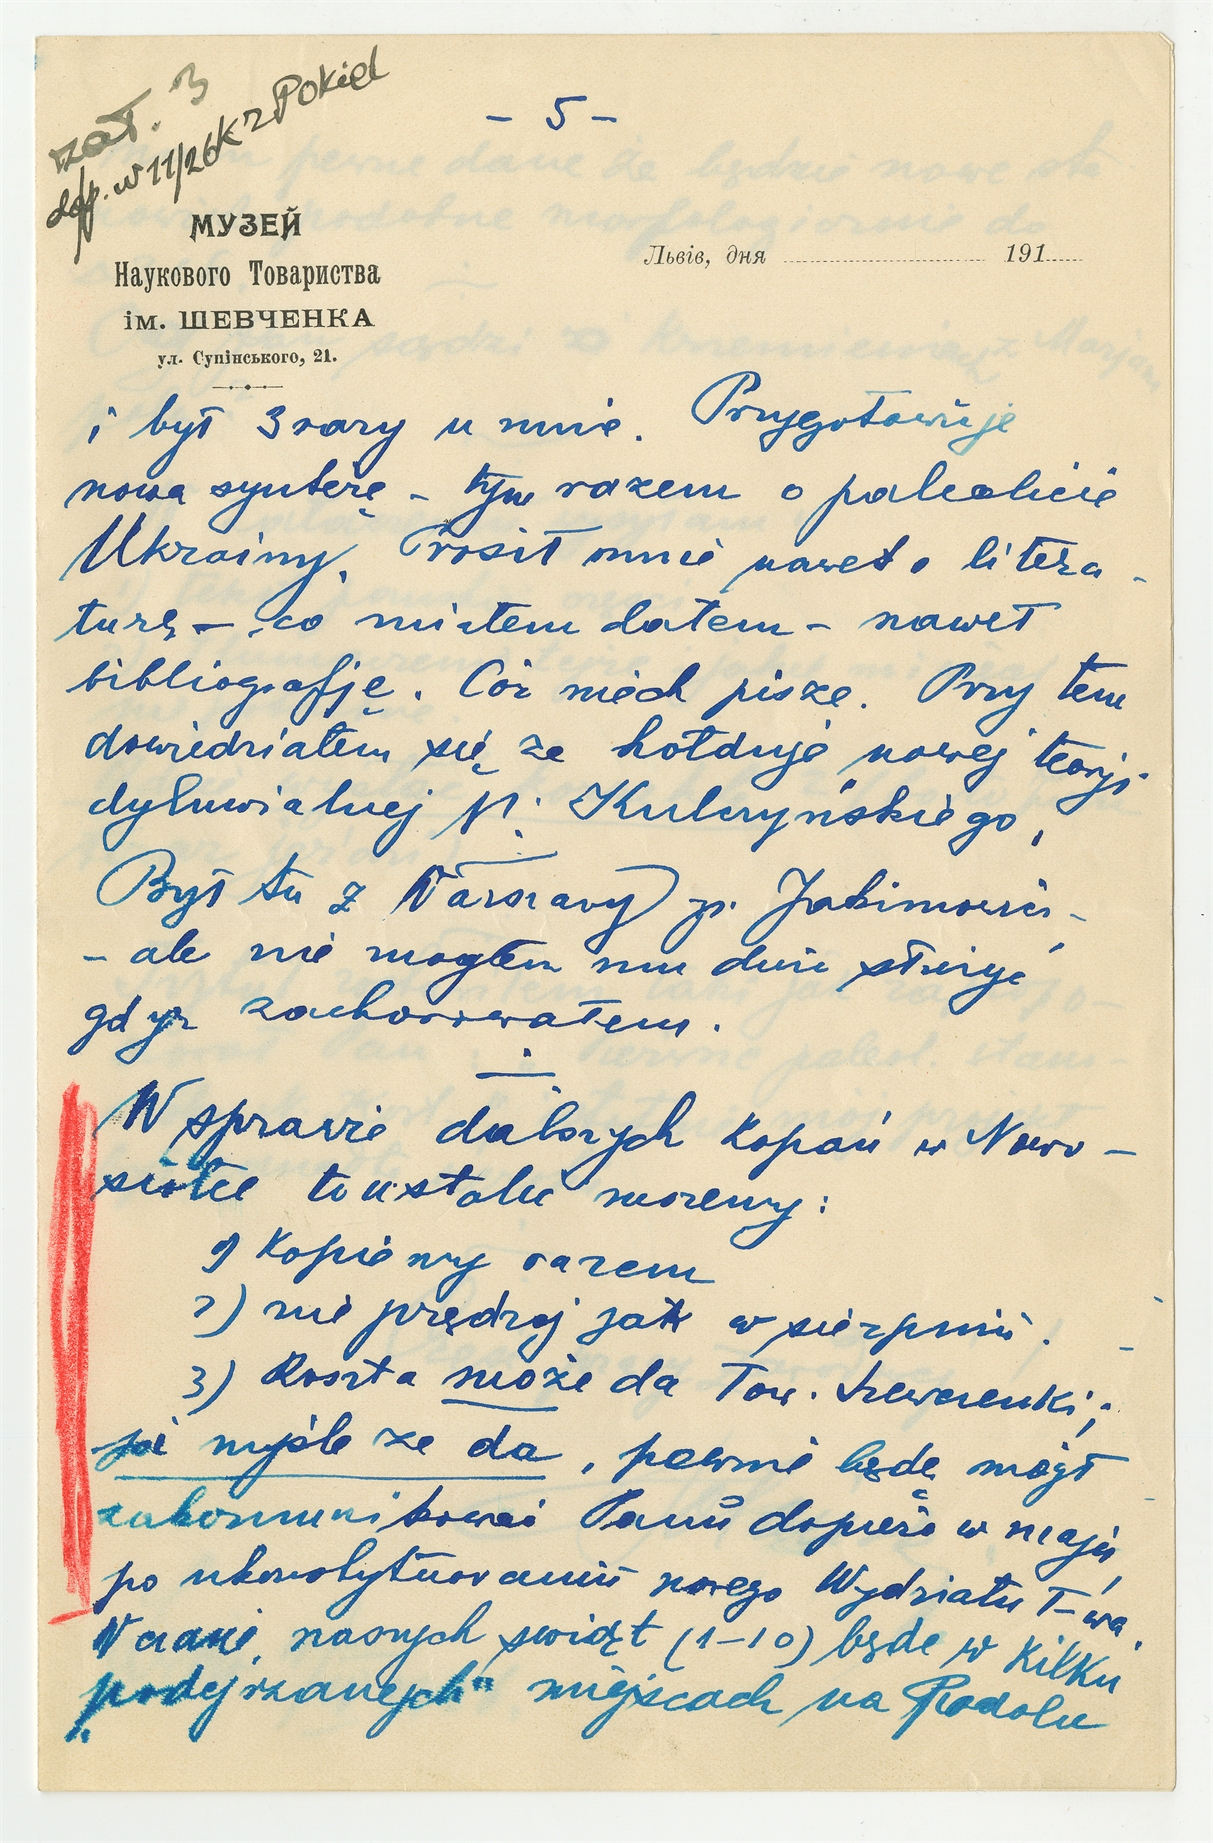 zał. 3
- 5 -
МУЗЕЙ
Наукового Товариства
ім. ШЕВЧЕНКА
ул. Супінського, 21.
Львів, дня 191
i był 3 razy u mnie. Przygotowuje
nową syntezę – tym razem o paleolicie
Ukrainy. Prosił mnie nawet o litera-
turę – co miałem dałem – nawet
bibliografję. Cóż niech pisze. Przy tem
dowiedziałem się że hołduje nowej teorji
dyluwialnej p. Kulczyńskiego.
Był tu z Warszawy p. Jakimowicz
- ale nie mogłem mu dużo służyć
gdyż zachorowałem.
W sprawie dalszych kopań w Nowo-
siółce to ustalić możemy:
1) Kopiemy razem
2) nie prędzej jak w sierpniu.
3) Koszta może da Tow. Szewczenki;
ja myślę że da, pewnie będę mógł
zakomunikować Panu dopiero w maju
po ukonstytuowaniu nowego Wydziału T-wa.
W czasie naszych świąt (1–10) będę w kilku
„podejrzanych" miejscach na Podolu